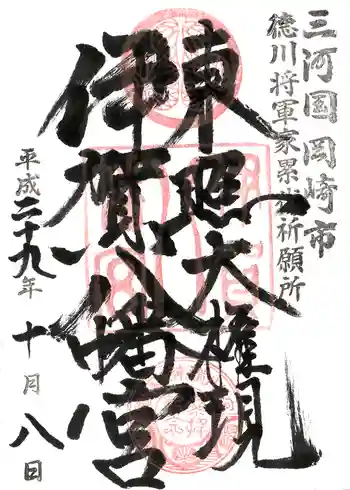 三河国岡崎市
徳川将軍家累代祈願所
東照大権現
伊賀八幡宮
平成二十九年
十月八日